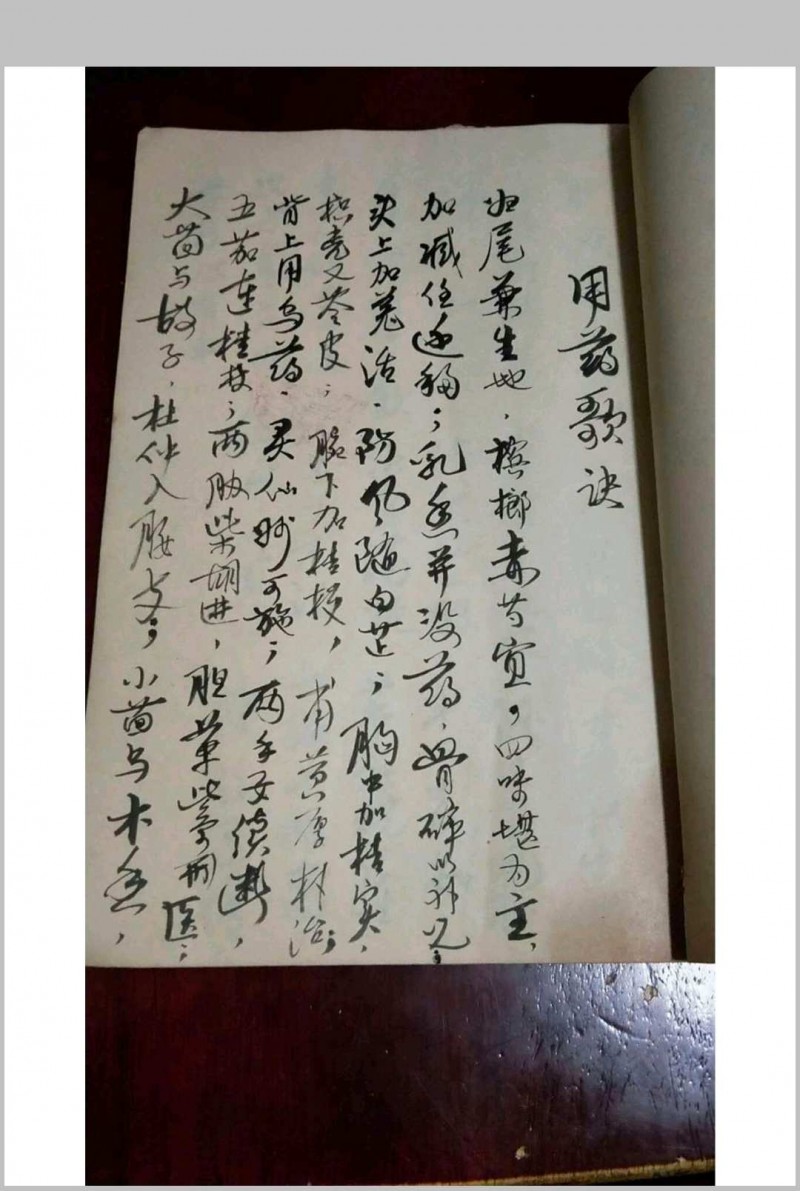 用药歌诀
归尾兼生地，槟榔赤芍宜，四味堪为主，
加减任迁移；乳香并没药，骨碎以补兄；
头上加羌活、防风随白芷；胸中加桔实，
枳壳又苓皮；脘下加桔梗，菖厚朴治；
背上用乌药、灵仙妙可施；两手女续断，
五茄连桂枝；两肋柴胡进，胆草紫荆医；
大茴与故子，杜仲入腰支；小茴与木香，